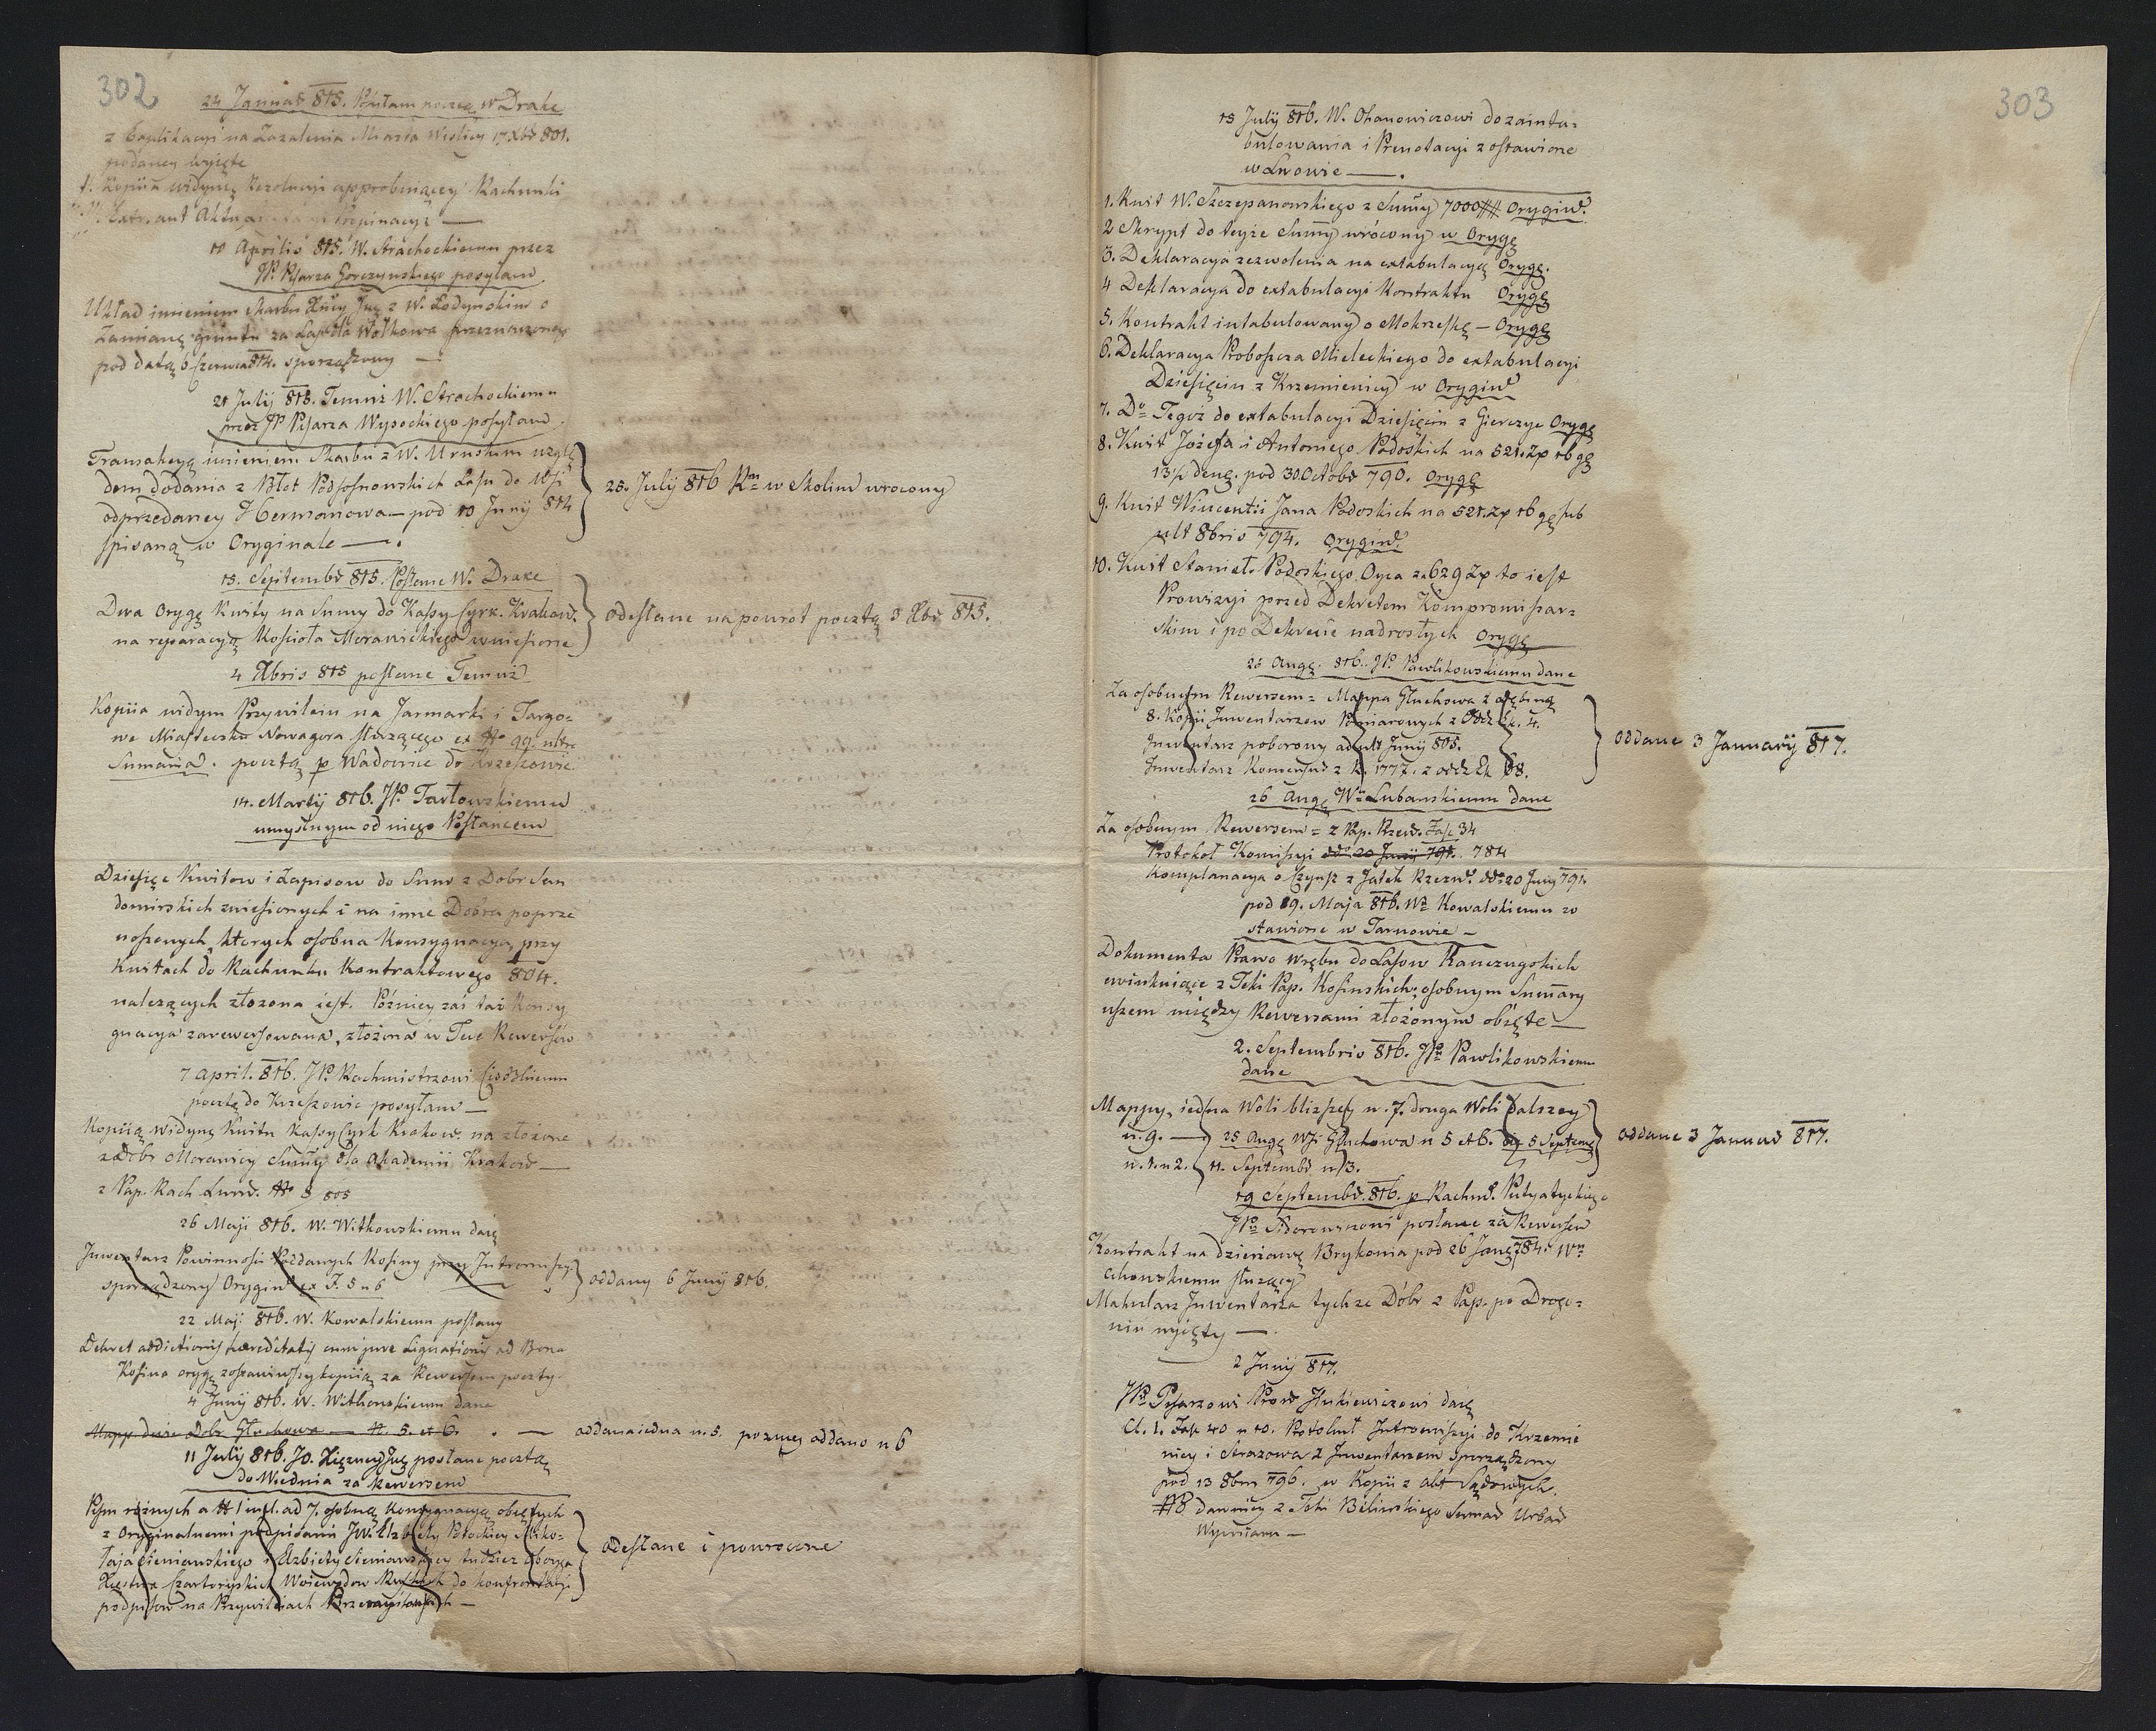 302
24 Januar 815. Panu poczcą W Drake
z Explikacyi na Zażalenia Miasta Wislicy 17 Xbr 801.
podaney wyjęte
1. Kopiia widym Rezolucyi approbującey Rachunki
10 Aprilis 815. W. Strachockiemu przez
JP. Pisarza Gorczynskiego posyłam
Układ imieniem Skarbu Xney Jmci z W. Łodynskim o
Zamianę gruntu za Łaś Wołkowa przeznaczonego
pod datą 6 Czerwca 814. sporządzony —
21 July 815. Temuż W. Strachockiemu
przez JP Pisarza Wysockiego posyłam
Transakcyą imieniem Skarbu z W. Urunskim wzglę
dem dodania z Błot Podsosnowskich Lasu do Wsi
odprzedaney Hermanowa — pod 10 Juny 814
spisaną w Oryginale —.
25. July 816 w Skolim wrocony
15. Septembr 815. Posłane W. Drake
Dwa Oryg. Kwity na Summy do Kassy Cyrk. Krakow.
na reparacyą Kościoła Morawickiego wniesione
Odesłane na powrot pocztą 3 Xbr 815.
4 Xbris 815 posłane Temuż
Kopiia widym Przywileiu na Jarmarki i Targo=
we Miasteczku Nowagora służącego ex No 99. ultro
Sumaria. pocztą p Wadowice do Krzeszowic
14. Marty 816. JP. Tarłowskiemu
umyslnym od niego Posłańcem
Dziesięc Kwitow i Zapisow do Summ z Dobr San
domirskich zniesionych i na inne Dobra poprze
noszonych, ktorych osobna Konsygnacya, przy
Kwitach do Rachunku Kontraktowego 804.
należących złożona iest. Pózniey zaś taż Konsy
gnacya zarewersowana, złożona w Tece Rewersow
7 April. 816. JP. Rachmistrzowi
pocztą do Krzeszowic posyłam —
Kopiią widym Kwitu Kassy Cyrk Krakow. na złożone
z Dobr Morawicy Summy dla Akademii Krakow —
z Pap. Rach No 8 805
26 Maji 816. W. Witkowskiemu daię
Inwentarz Powinnosci Poddanych Kosiny przy Intromissyi
sporządzony Orygin ex F. 5 n 6
oddany 6 Juny 816.
22 Maji 816. W. Kowalskiemu posłany
Dekret addictionis haereditatis cum jure Lignationis ad Bona
Kosina oryg. zostawiwszy kopiią za Rewersem poczty.
4 Juny 816. W. Witkowskiemu dane
Mapp dwie Dobr Głuchowa — N. 5. et 6. . —
oddana iedna n. 5. pozniey oddano n 6
11 July 816. JO. Xiężney Jmci posłane pocztą
do Wiednia za Rewersem
Pism rożnych a N 1 incl. ad 7. osobną Konsygnacyą obiętych
z Oryginalnemi podpisami JW. Elzbiety Potockiey Miko=
łaja Sieniawskiego i Elzbiety Sieniawskiey tudziez oboyga
Xięstwa Czartoryskich Woiewodow Ruskich do konfrontacyi
podpisow na Przywileiach —
odesłane i powrocone
303
15 July 816. W. Ohanowiczowi do zainta=
bulowania i Prenotacyi zostawione
w Lwowie —.
1. Kwit W. Szczepanowskiego z Summy 7000## Orygin.
2 Skrypt do teyże Summy wrócony w Oryg
3. Deklaracya zezwolenia na extabulacyą Oryg.
4 Deklaracya do extabulacyi Kontraktu Oryg
5. Kontrakt intabulowany o Mokrzeskę — Oryg
6. Deklaracya Proboszcza Mieleckiego do extabulacyi
Dziesięcin z Krzemienicy w Orygin
7. Do Tegoż do extabulacyi Dziesięcin z Gierczyc Oryg
8. Kwit Józefa i Antoniego Podoskich na 521. Zp 16 g
13½ deng. pod 30 Octobr 790. Oryg
9. Kwit Wincentii Jana Podoskich na 521. Zp 16 g sub
ult 8bris 794. Orygin.
10. Kwit Stanisł. Podoskiego Oyca za 629 Zp to iest
Prowizyi przed Dekretem Kompromissar=
skim i po Dekrecie nadrosłych Oryg
25 Aug. 816. JP. Pawlikowskiemu dane
Za osobnym Rewersem = Mappa Głuchowa z
8. Kopii Inwentarzow Pomiarowych z Odd Lit. 4.
Inwentarz poborowy ad ult Juny 805.
Inwentarz z R. 1777. z oddz Lit 68.
oddane 3 January 817.
26 Aug. Wu Lubanskiemu dane
Za osobnym Rewersem = z Pap. Rzesz. Fasc 34
Protokoł Komissyi ddo 20 Juny 791. 784
Komplanacya o Czynsz z Jatek Rzeszow. ddo 20 Juny 791.
pod 19. Maja 816. Wu Kowalskiemu zo
stawione w Tarnowie —
Dokumenta Prawo wrębu do Lasow Kanczugskich
ewinkuiące z Teki Pap. Kosinskich, osobnym Sumary
uszem między Rewersami złożonym obięte —
2. Septembris 816. JPu Pawlikowskiemu
dane
Mappy, iedna Woli bliższey n. 7. druga Woli dalszey
n. 9. — 25 Aug Wsi Głuchowa n 5 et 6. 5 Septem
n. 1. n 2. 11. Septembr n 3.
oddane 3 Januar 817.
19 Septembr. 816. p Rachm. Putyatyckiego
JPu Sidorowiczowi posłane za Rewersem
Kontrakt na dzierżawę Brykonia pod 26 784. Wu
chowskiemu służący
Makularz Inwentarza tychże Dóbr z Pap. po Drogo=
niu wyięty —.
2 Juny 817.
JPu Pisarzowi Prow Hukiewiczowi daię
Ct. 1. Fasc 40 n 10. Protokuł Intromissyi do Krzemie
nicy i Strazowa z Inwentarzem sporządzony
pod 13 8bra 796. w Kopii z akt Sądowych.
N 8 dawniey z Teki Bielinskiego Sumar Urbar